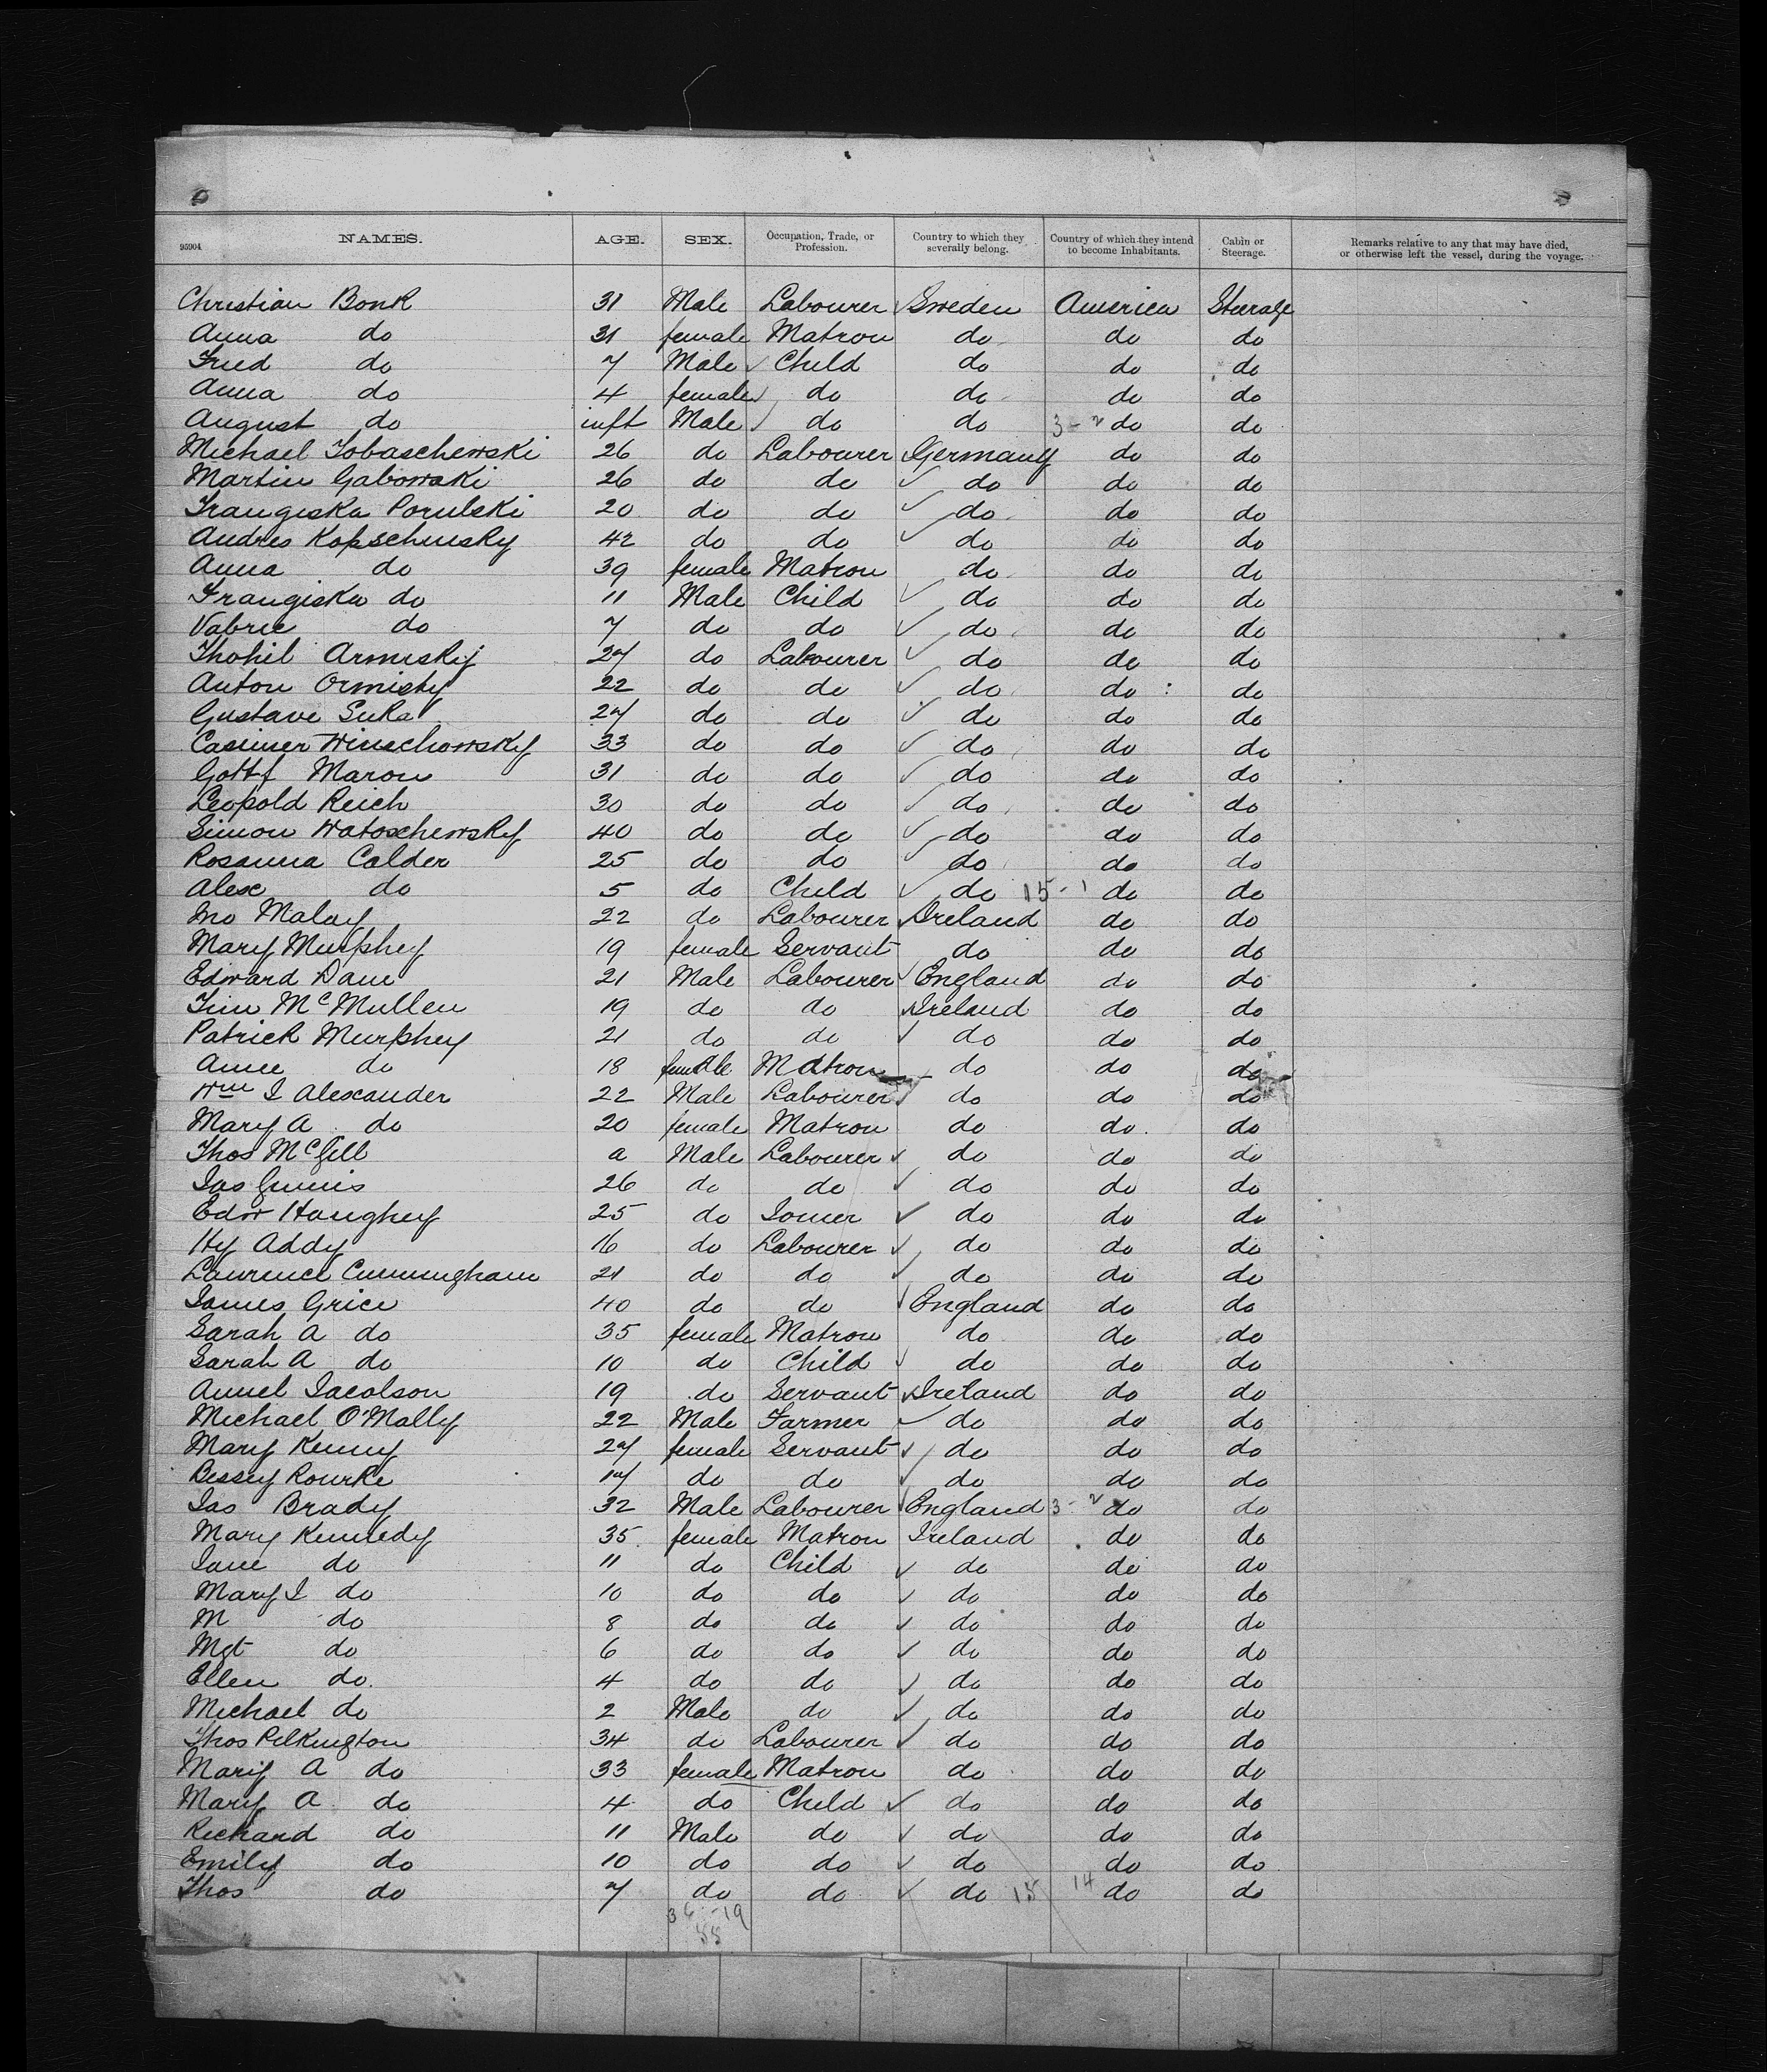 95904 NAMES. AGE. SEX. Occupation, Trade, or Profession. Country to which they severally belong. Country of which they intend to become Inhabitants. Cabin or Steerage. Remarks relative to any that may have died, or otherwise left the vessel, during the voyage.
Christian Bonk 31 Male Labourer Sweden America Steerage
Anna do 31 female Matron do do do
Fred do 7 Male Child do do do
Anna do 4 female do do do do
August do inft Male do do 3-2 do do
Michael Tobaschewski 26 do Labourer Germany do do
Martin Gabowski 26 do do do do do
Frangiska Porulski 20 do do do do do
Andres Kopschinsky 42 do do do do do
Anna do 39 female Matron do do do
Frangiska do 11 Male Child do do do
Vabrie do 7 do do do do do
Thohil Armisky 27 do Labourer do do do
Anton Ormisky 22 do do do do do
Gustave Suka 27 do do do do do
Casimer Winschowsky 33 do do do do do
Gottf Maron 31 do do do do do
Leopold Reich 30 do do do do do
Simon Watoschewsky 40 do do do do do
Rosanna Calder 25 do do do do do
Alex do 5 do Child do 15-1 do do
Jno Malay 22 do Labourer Ireland do do
Mary Murphey 19 female Servant do do do
Edward Dam 21 Male Labourer England do do
Tim McMullen 19 do do Ireland do do
Patrick Murphey 21 do do do do do
Anne do 18 female Matron do do do
Wm J Alexander 22 Male Labourer do do do
Mary A do 20 female Matron do do do
Thos McGill a Male Labourer do do do
Jas Ginnis 26 do do do do do
Edw Haughey 25 do Joiner do do do
Hy Addy 16 do Labourer do do do
Laurence Cunningham 21 do do do do do
James Grice 40 do do England do do
Sarah A do 35 female Matron do do do
Sarah A do 10 do Child do do do
Annel Jacolson 19 do Servant Ireland do do
Michael O'Mally 22 Male Farmer do do do
Mary Kenny 27 female Servant do do do
Bessey Rourke 17 do do do do do
Jas Brady 32 Male Labourer England 3-2 do do
Mary Kennedy 35 female Matron Ireland do do
Jane do 11 do Child do do do
Mary J do 10 do do do do do
M do 8 do do do do do
Mgt do 6 do do do do do
Ellen do 4 do do do do do
Michael do 2 Male do do do do
Thos Pilkington 34 do Labourer do do do
Mary A do 33 female Matron do do do
Mary A do 4 do Child do do do
Richard do 11 Male do do do do
Emily do 10 do do do do do
Thos do 7 do do do 15 14 do do